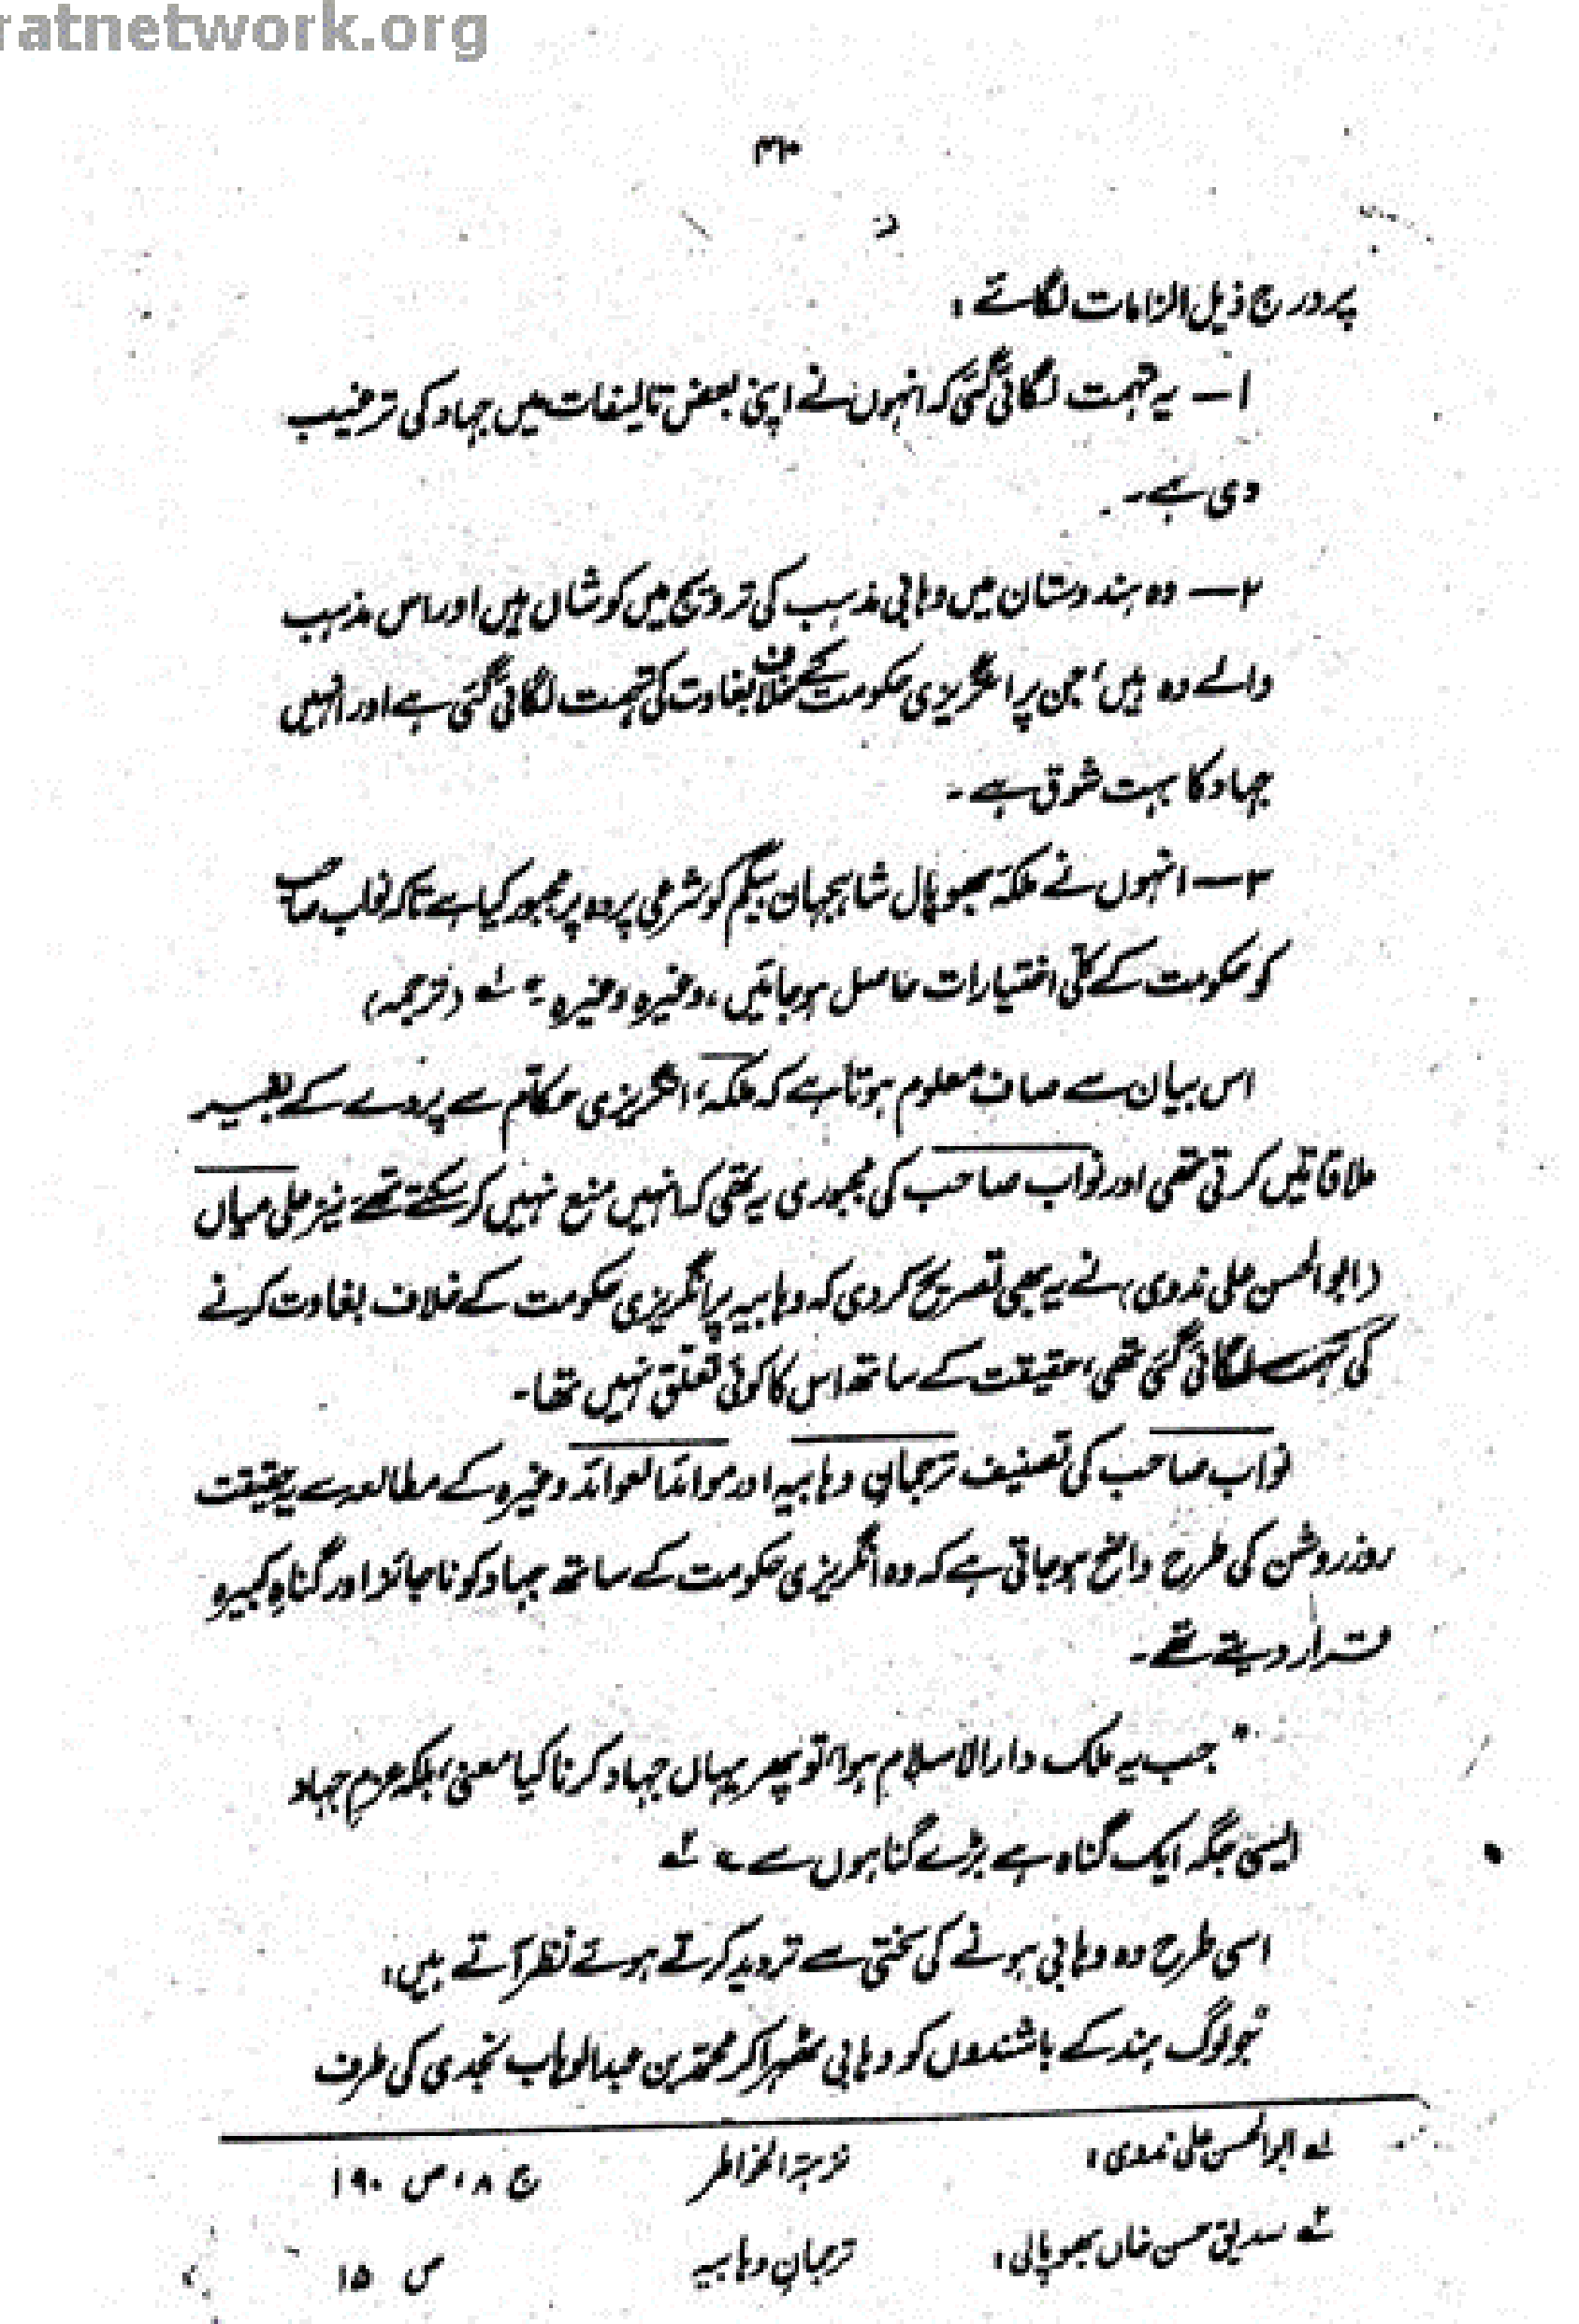 ratnetwork.org
پر درج ذیل الزامات لگائے :
۱— یہ تہمت لگائی گئی کہ انہوں نے اپنی بعض تالیفات میں جہاد کی ترغیب
دی ہے۔
۲— وہ ہندوستان میں وہابی مذہب کی ترویج میں کوشاں ہیں اور اس مذہب
والے وہ ہیں، جن پر انگریزی حکومت کے خلاف بغاوت کی تہمت لگائی گئی ہے اور انہیں
جہاد کا بہت شوق ہے۔
۳— انہوں نے ملکۂ بھوپال شاہجہان بیگم کو شرعی پردہ پر مجبور کیا ہے تاکہ نواب صاحب
کو حکومت کے کلی اختیارات حاصل ہو جائیں، وغیرہ وغیرہ۔" لہ (ترجمہ)
اس بیان سے صاف معلوم ہوتا ہے کہ ملکہ، انگریزی حکام سے پردے کے بغیر
ملاقاتیں کرتی تھی اور نواب صاحب کی مجبوری یہ تھی کہ انہیں منع نہیں کر سکتے تھے نیز علی میاں
(ابوالحسن علی ندوی) نے یہ بھی تصریح کر دی کہ وہابیہ پر انگریزی حکومت کے خلاف بغاوت کرنے
کی تہمت لگائی گئی تھی، حقیقت کے ساتھ اس کا کوئی تعلق نہیں تھا۔
نواب صاحب کی تصنیف ترجمان وہابیہ اور موائد العوائد وغیرہ کے مطالعہ سے یہ حقیقت
روز روشن کی طرح واضح ہو جاتی ہے کہ وہ انگریزی حکومت کے ساتھ جہاد کو ناجائز اور گناہِ کبیرہ
قرار دیتے تھے۔
"جب یہ ملک دارالاسلام ہوا، تو پھر یہاں جہاد کرنا کیا معنی؛ بلکہ عزمِ جہاد
ایسی جگہ ایک گناہ ہے بڑے گناہوں سے" ٢ہ
اسی طرح وہ وہابی ہونے کی سختی سے تردید کرتے ہوئے نظر آتے ہیں:
"جو لوگ ہند کے باشندوں کو وہابی ٹھہرا کر محمد بن عبدالوہاب نجدی کی طرف
لہ ابوالحسن علی ندوی : نزہۃ الخواطر ج ۸، ص ۱۹۰
٢ہ صدیق حسن خاں بھوپالی : ترجمانِ وہابیہ ص ۱۵